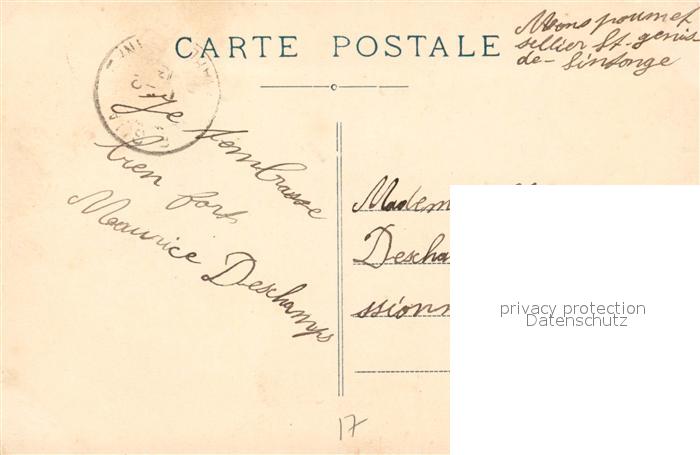 CARTE POSTALE
Mons poumet
sellier St-genis
de-Sintonge
Je tembrasse
bien fort
Maurice Deschamps
Madem
Descha
ssionn
privacy protection
Datenschutz
17